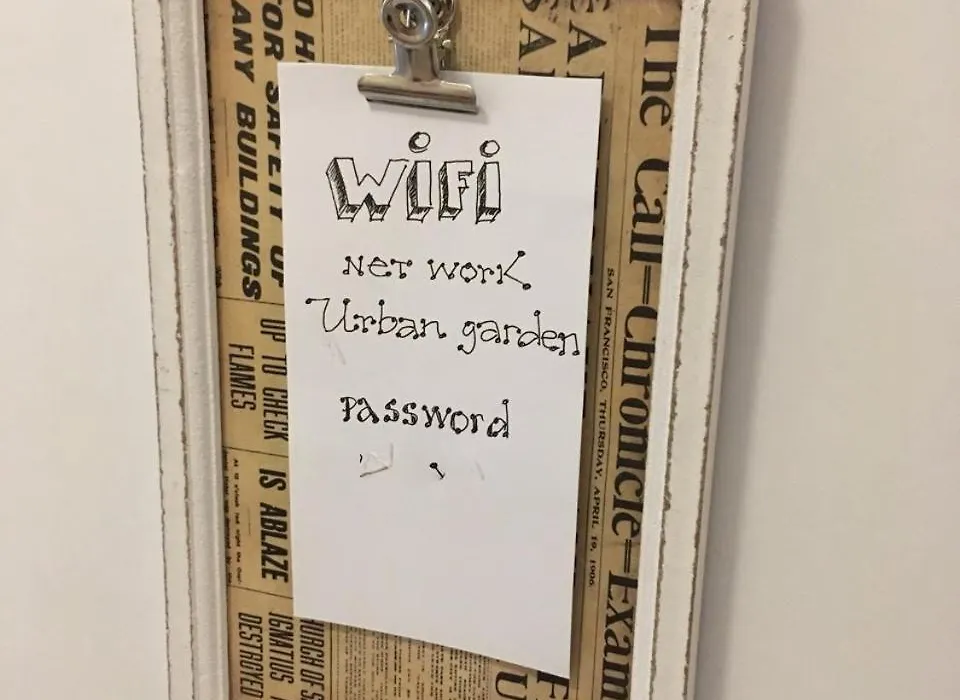 WiFi
Network
Urban garden
Password
The Call=Chronicle=Exam
SAN FRANCISCO, THURSDAY, APRIL 19, 1906.
ANY BUILDINGS
UP TO CHECK
FLAMES
IS ABLAZE
IGNATIUS
DESTROYED